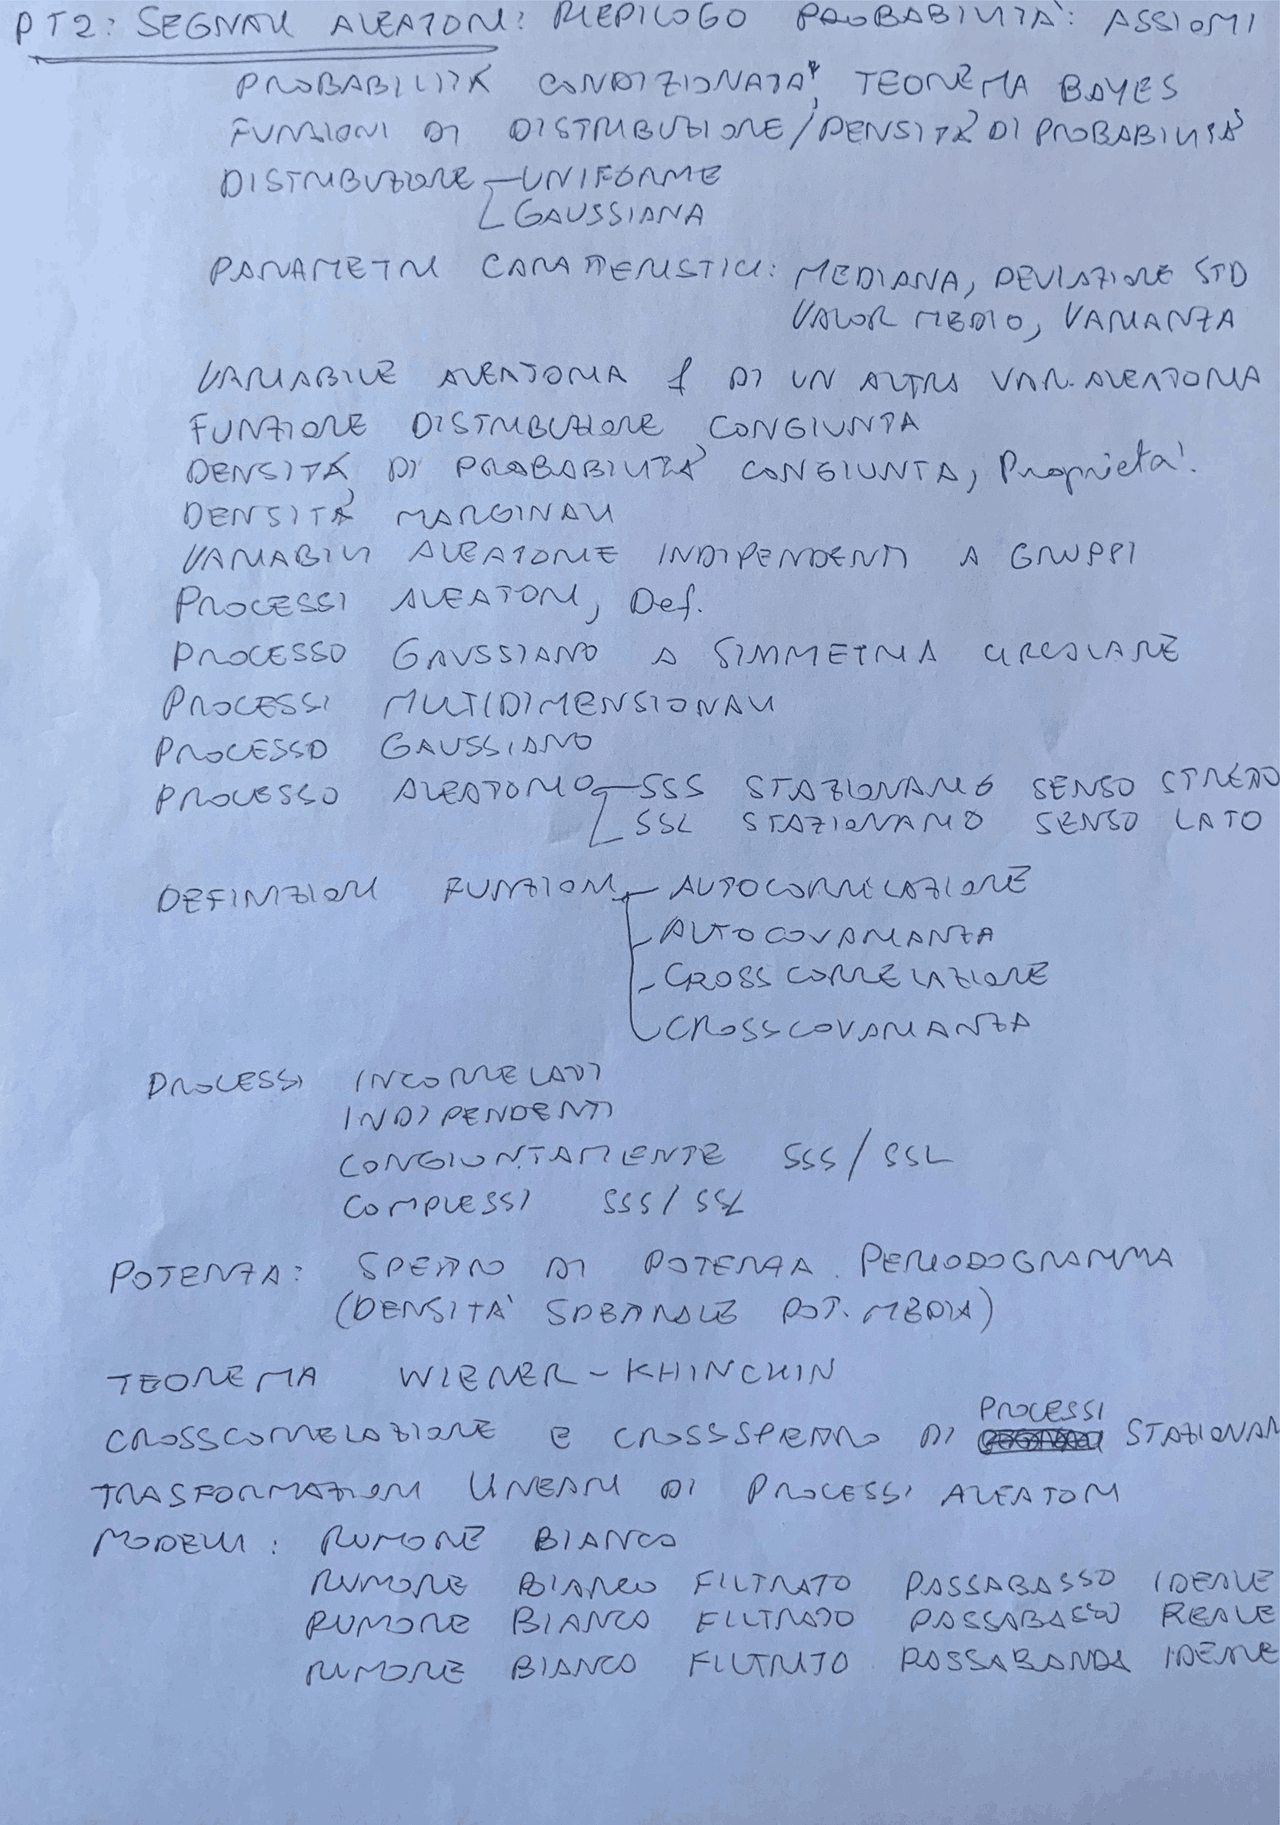 PT2: SEGNALI ALEATORI: RIEPILOGO PROBABILITÀ: ASSIOMI
PROBABILITÀ CONDIZIONATA, TEOREMA BAYES
FUNZIONI DI DISTRIBUZIONE/DENSITÀ DI PROBABILITÀ
DISTRIBUZIONE UNIFORME
GAUSSIANA
PARAMETRI CARATTERISTICI: MEDIANA, DEVIAZIONE STD
VALOR MEDIO, VARIANZA
VARIABILE ALEATORIA f DI UN ALTRA VAR. ALEATORIA
FUNZIONE DISTRIBUZIONE CONGIUNTA
DENSITÀ DI PROBABILITÀ CONGIUNTA, Proprietà.
DENSITÀ MARGINALI
VARIABILI ALEATORIE INDIPENDENTI A GRUPPI
PROCESSI ALEATORI, Def.
PROCESSO GAUSSIANO A SIMMETRIA CIRCOLARE
PROCESSI MULTIDIMENSIONALI
PROCESSO GAUSSIANO
PROCESSO ALEATORIO SSS STAZIONARIO SENSO STRETTO
SSL STAZIONARIO SENSO LATO
DEFINIZIONI FUNZIONI AUTOCORRELAZIONE
AUTOCOVARIANZA
CROSSCORRELAZIONE
CROSSCOVARIANZA
PROCESSI INCORRELATI
INDIPENDENTI
CONGIUNTAMENTE SSS/SSL
COMPLESSI SSS/SSL
POTENZA: SPETTRO DI POTENZA. PERIODOGRAMMA
(DENSITÀ SPETTRALE POT. MEDIA)
TEOREMA WIENER-KHINCHIN
CROSSCORRELAZIONE E CROSSSPETTRO DI PROCESSI STAZIONARI
TRASFORMAZIONI LINEARI DI PROCESSI ALEATORI
MODELLI: RUMORE BIANCO
RUMORE BIANCO FILTRATO PASSABASSO IDEALE
RUMORE BIANCO FILTRATO PASSABASSO REALE
RUMORE BIANCO FILTRATO PASSABANDA IDEALE